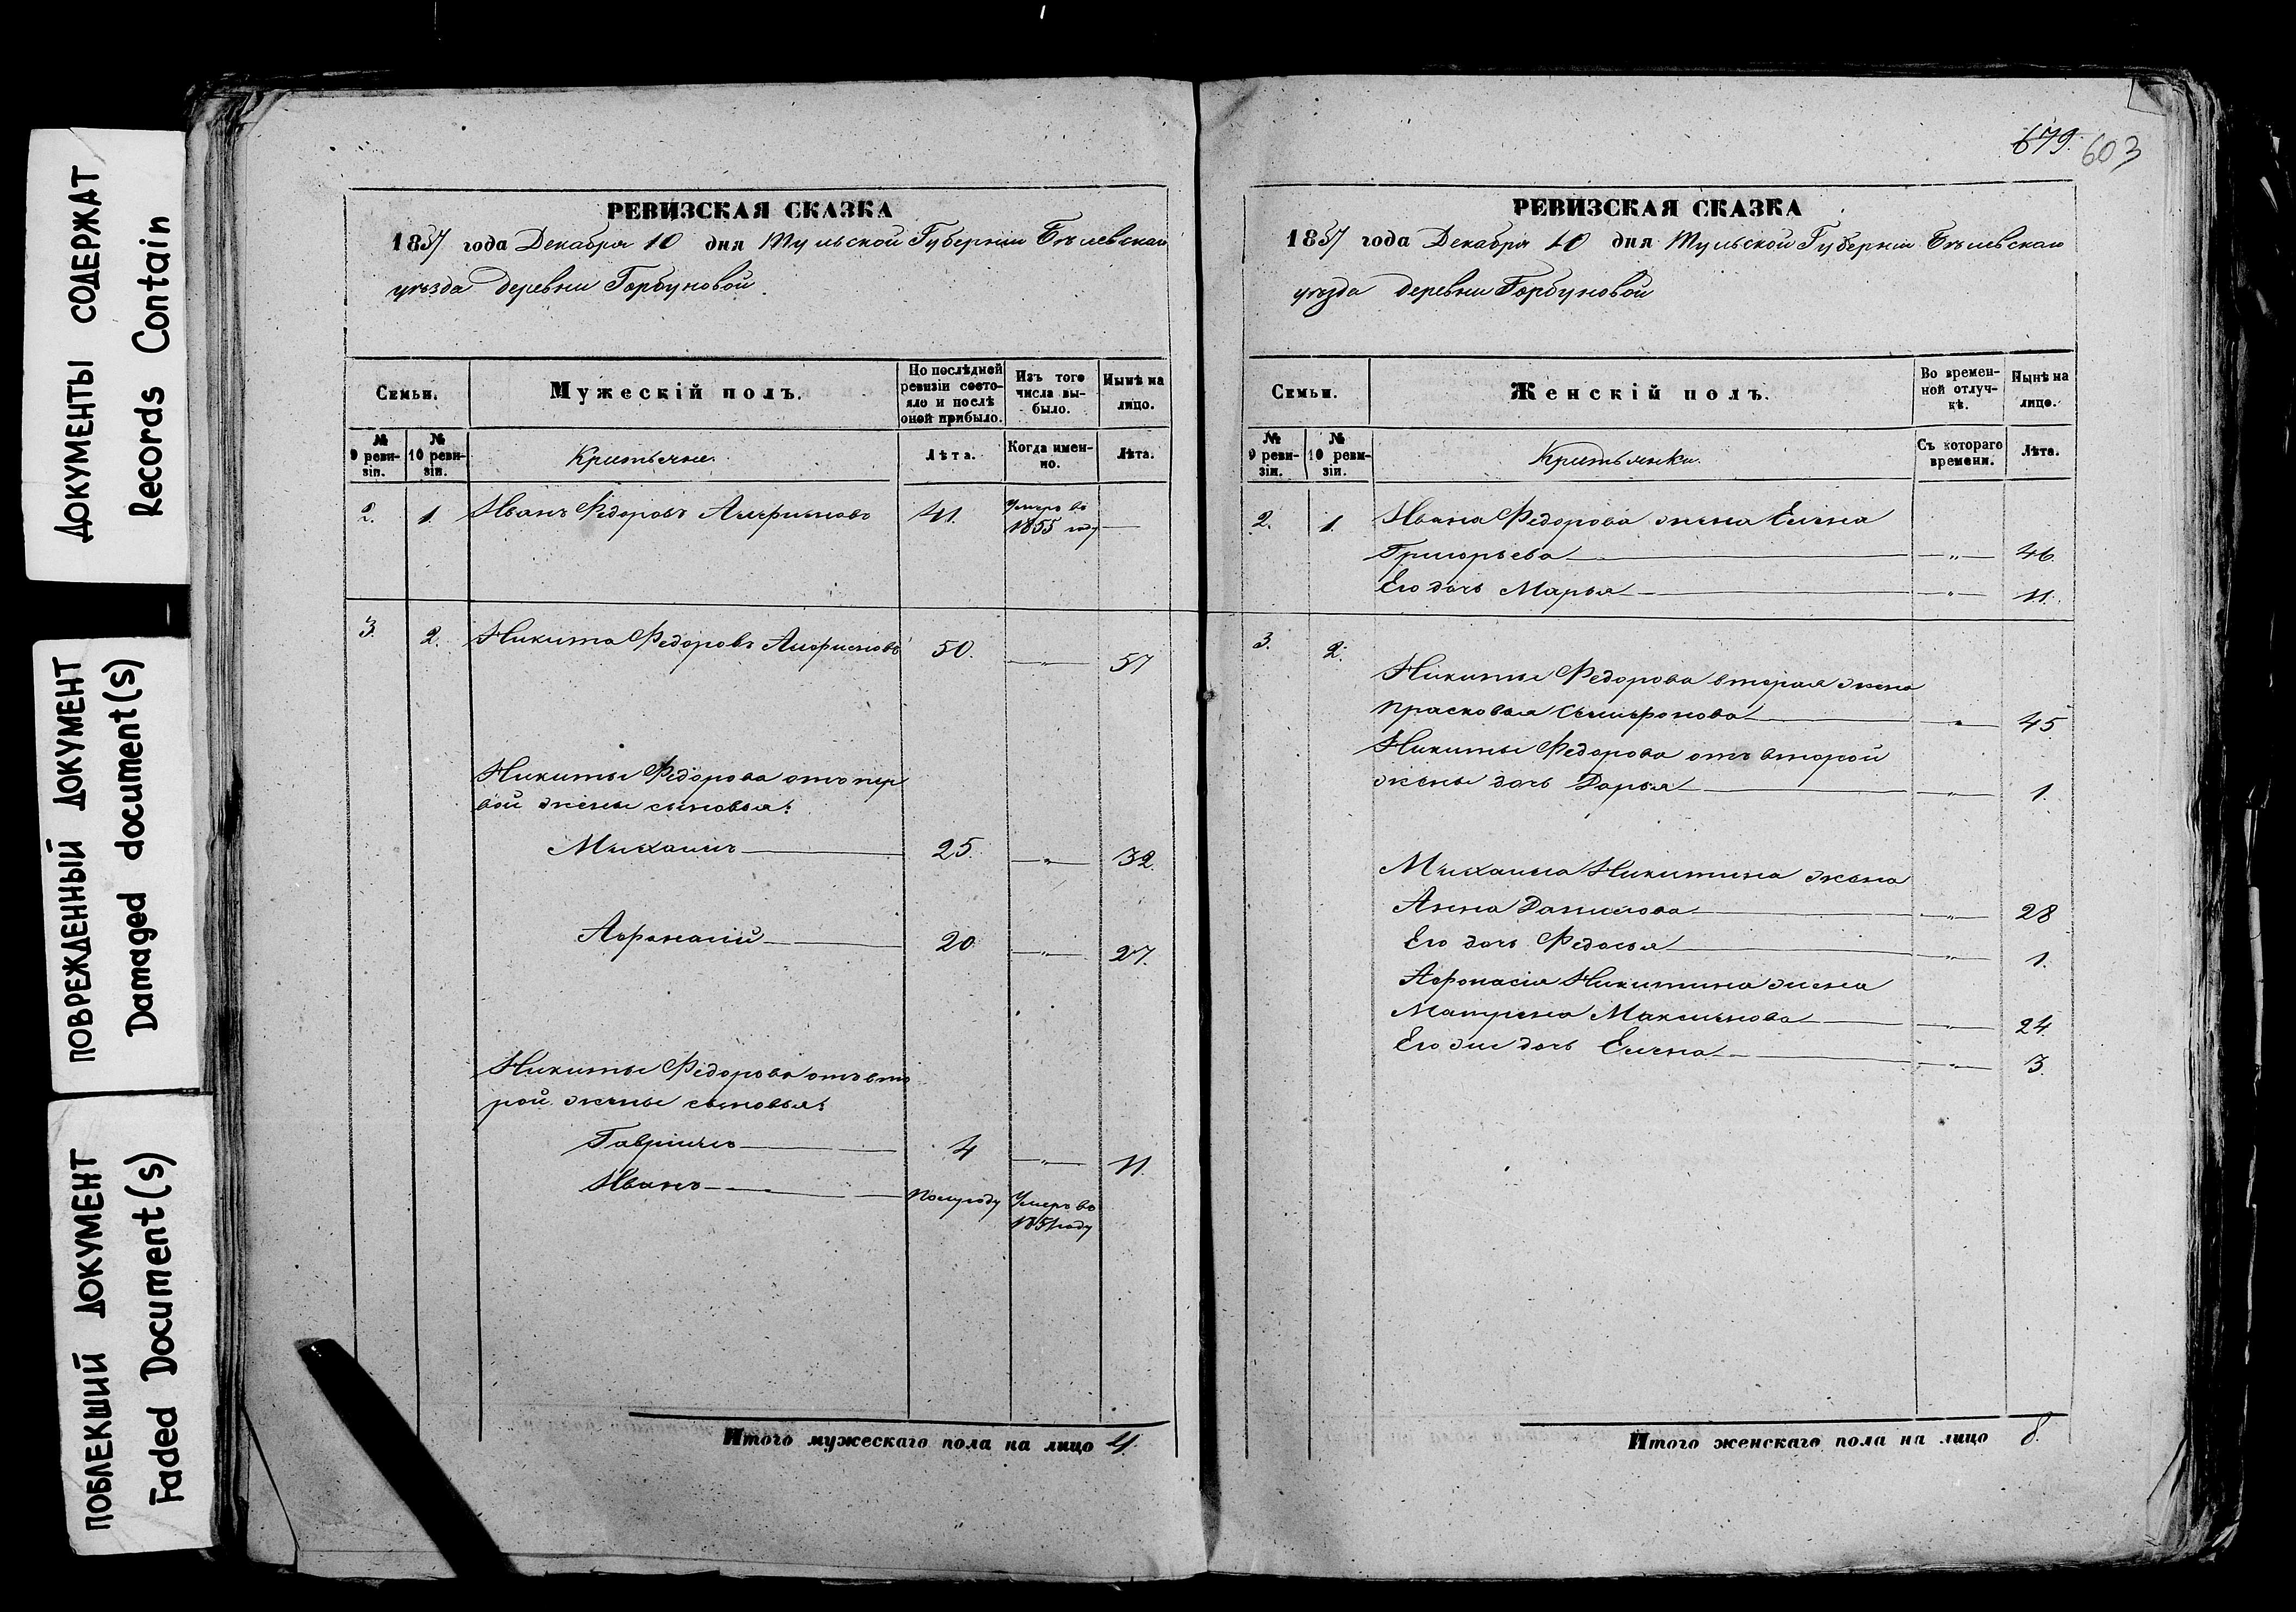 ДОКУМЕНТЫ СОДЕРЖАТ
Records Contain
ПОВРЕЖДЕННЫЙ ДОКУМЕНТ
Damaged document(s)
ПОБЛЕКШИЙ ДОКУМЕНТ
Faded Document(s)
РЕВИЗСКАЯ СКАЗКА
1857 года Декабря 10 дня Тульской Губерніи Бѣлевскаго
уѣзда деревни Горбуновой
Семьи.
Мужескій полъ.
По послѣдней ревизіи состояло и послѣ оной прибыло.
Изъ того числа выбыло.
Нынѣ на лицо.
№ 9 ревизіи.
№ 10 ревизіи.
Крестьяне.
Лѣта.
Когда именно.
Лѣта.
2. 1. Иванъ Федоровъ 41. Умеръ въ
1855 году
3. 2. Никита Федоровъ 50. — „ — 57
Никиты Федорова отъ пер
вой жены сыновья:
Михаилъ 25. — „ — 32.
Афонасій 20 — „ — 27.
Никиты Федорова отъ вто
рой жены сыновья:
Гаврiилъ 4 — „ — 11.
Иванъ полугоду Умеръ въ
1851 году
Итого мужескаго пола на лицо 4.
679. 603
РЕВИЗСКАЯ СКАЗКА
1857 года Декабря 10 дня Тульской Губерніи Бѣлевскаго
уѣзда деревни Горбуновой
Семьи.
Женскій полъ.
Во временной отлучкѣ.
Нынѣ на лицо.
№ 9 ревизіи.
№ 10 ревизіи.
Крестьянки.
Съ котораго времени.
Лѣта.
2. 1. Ивана Федорова жена Елена
Григорьева — „ — 46.
Его дочь Марья — „ — 11.
3. 2. Никиты Федорова вторая жена
Прасковья — „ — 45
Никиты Федорова отъ второй
жены дочь Дарья — „ — 1.
Михаила Никитина жена
Анна Данилова — „ — 28
Его дочь Федосья — „ — 1.
Афонасія Никитина жена
Матрена Максимова — „ — 24.
Его же дочь Елена — „ — 3.
Итого женскаго пола на лицо 8.